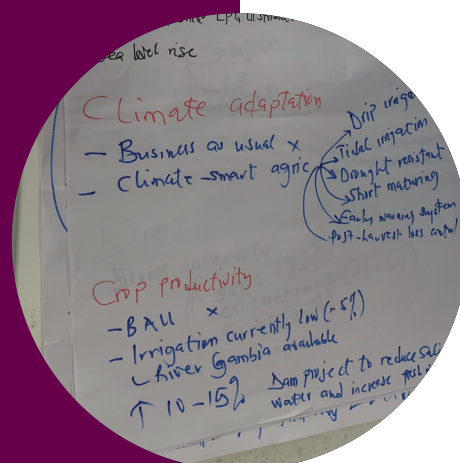 LPG
sea level rise
Climate adaptation
- Business as usual x
- Climate-smart agric
Drip
Tidal irrigation
Drought resistant
Short maturing
Early warning system
Post-harvest loss control
Crop productivity
- BAU x
- Irrigation currently low (-5%)
River Gambia available
↑ 10-15%
Dam project to reduce
water and increase fresh